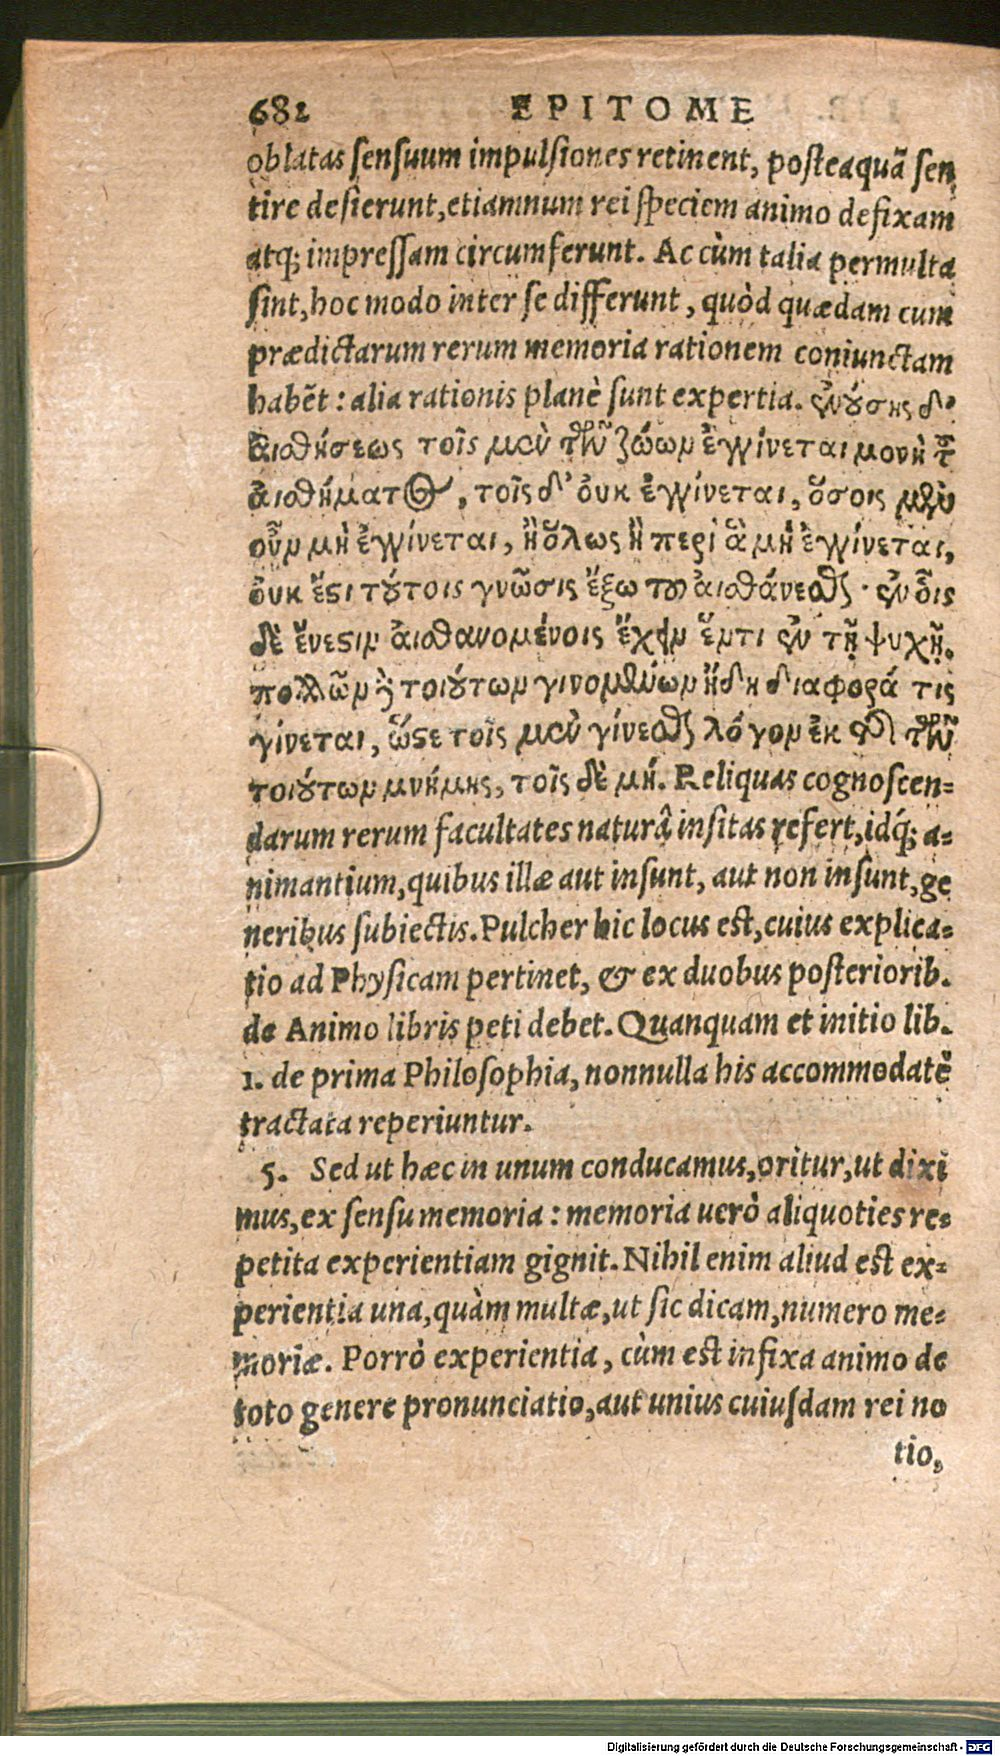 682 EPITOME
oblatas sensuum impulsiones retinent, posteaquã sen
tire desierunt, etiamnum rei speciem animo defixam
atq; impressam circumferunt. Ac cùm talia permulta
sint, hoc modo inter se differunt, quòd quædam cum
prædictarum rerum memoria rationem coniunctam
habẽt: alia rationis planè sunt expertia. ἐνούσης δ'
αἰσθήσεως τοῖς μὲν τῶν ζώων ἐγγίνεται μονὴ τ͂
αἰσθήματος, τοῖς δ' οὐκ ἐγγίνεται, ὅσοις μὲν
οὖν μὴ ἐγγίνεται, ἢ ὅλως ἢ περὶ ἃ μὴ ἐγγίνεται,
οὐκ ἔστι τούτοις γνῶσις ἔξω του αἰσθάνεσθαι· ἐν οἷς
δὲ ἔνεστιν αἰσθανομένοις ἔχειν ἕν τι ἐν τῇ ψυχῇ.
πολλῶν δὲ τοιούτων γινομένων ἤδη διαφορά τις
γίνεται, ὥστε τοῖς μὲν γίνεσθαι λόγον ἐκ τῆς τῶν
τοιούτων μνήμης, τοῖς δὲ μή. Reliquas cognoscen-
darum rerum facultates naturâ insitas refert, idq́; a-
nimantium, quibus illæ aut insunt, aut non insunt, ge
neribus subiectis. Pulcher hic locus est, cuius explica-
tio ad Physicam pertinet, & ex duobus posteriorib.
de Animo libris peti debet. Quanquam et initio lib.
1. de prima Philosophia, nonnulla his accommodatè
tractata reperiuntur.
5. Sed ut hæc in unum conducamus, oritur, ut dixi
mus, ex sensu memoria: memoria uerò aliquoties re-
petita experientiam gignit. Nihil enim aliud est ex-
perientia una, quàm multæ, ut sic dicam, numero me-
moriæ. Porrò experientia, cùm est infixa animo de
toto genere pronunciatio, aut unius cuiusdam rei no
tio,
Digitalisierung gefördert durch die Deutsche Forschungsgemeinschaft - DFG